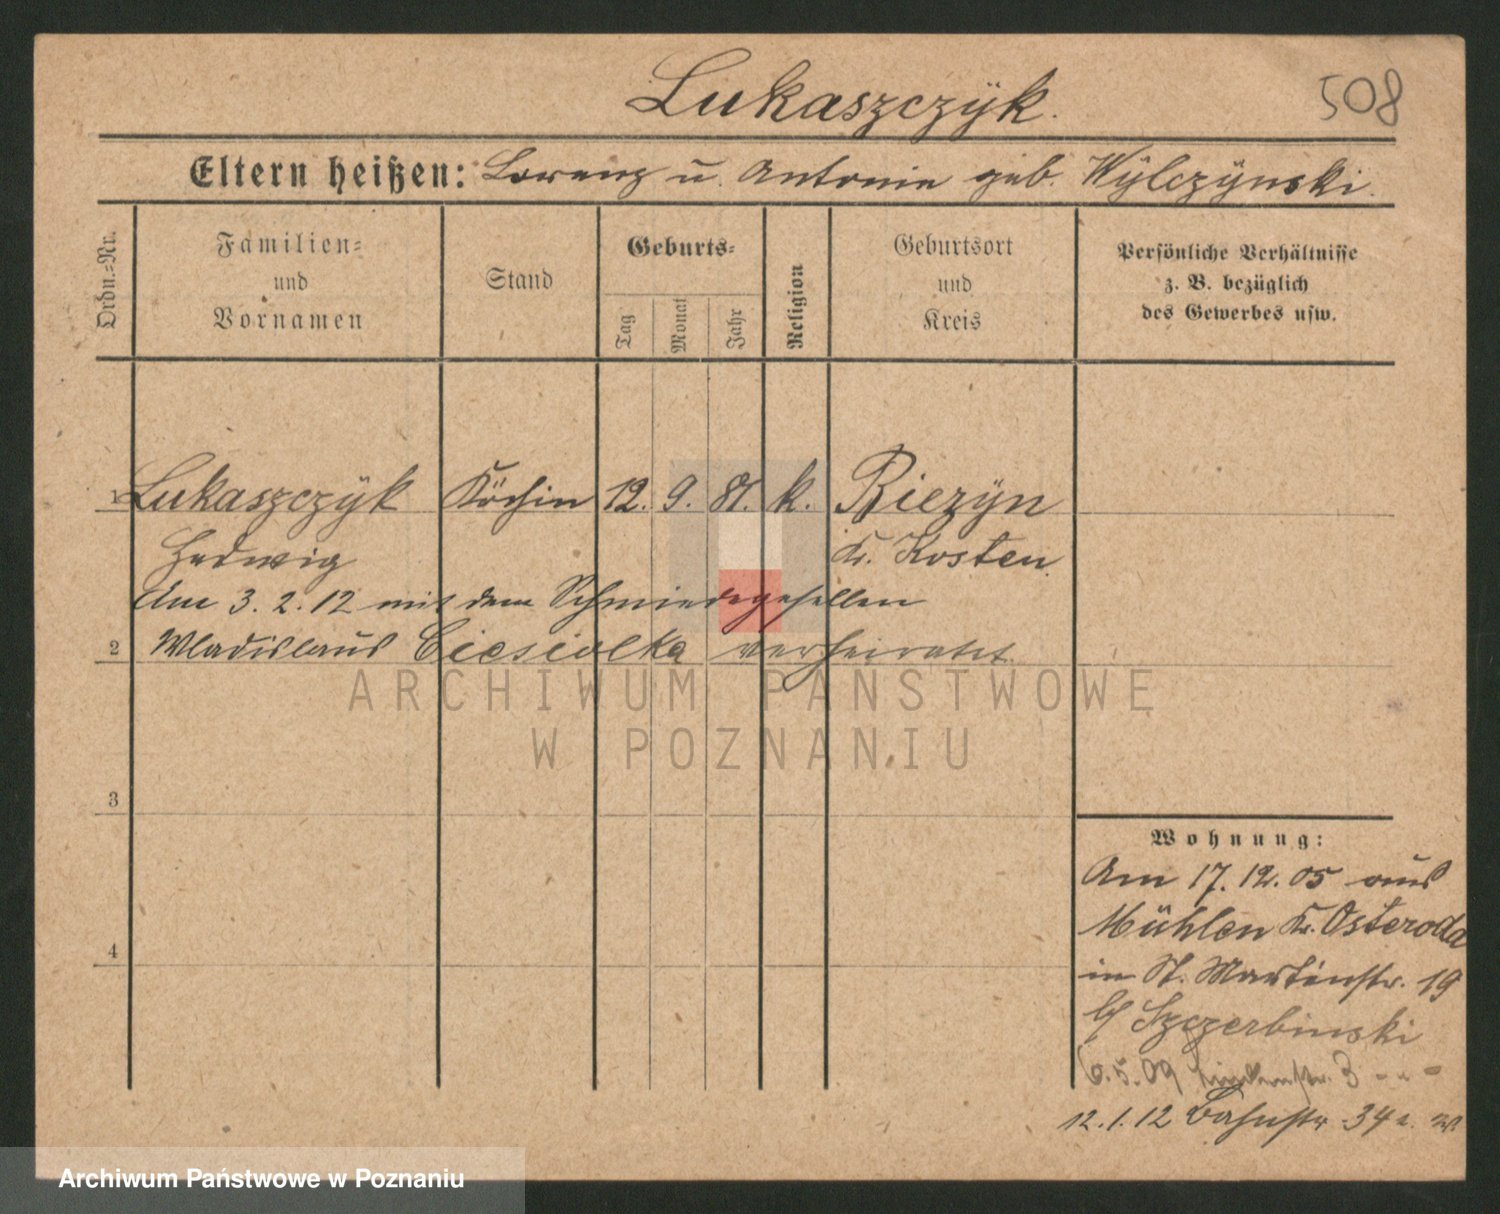 Lukaszczÿk.
508
Eltern heißen: Lorenz u. Antonie geb. Wÿlczÿnski.
Ordn.=Nr.
Familien=
und
Vornamen
Stand
Geburts=
Tag
Monat
Jahr
Religion
Geburtsort
und
Kreis
Persönliche Verhältnisse
z. B. bezüglich
des Gewerbes usw.
1 Lukaszczÿk Köchin 12. 9. 81. k. Riezÿn
Hedwig Kr. Kosten.
Am 3. 2. 12 mit dem Schmiedegesellen
2 Wladislaus Ciesiolka verheiratet.
ARCHIWUM PAŃSTWOWE
W POZNANIU
3
4
Wohnung:
Am 17. 12. 05 aus
Mühlen Kr. Osteroda
in St. Martinstr. 19
b/ Szczerbinski
6.5.09 3
12.1.12 Bahnstr. 34
Archiwum Państwowe w Poznaniu